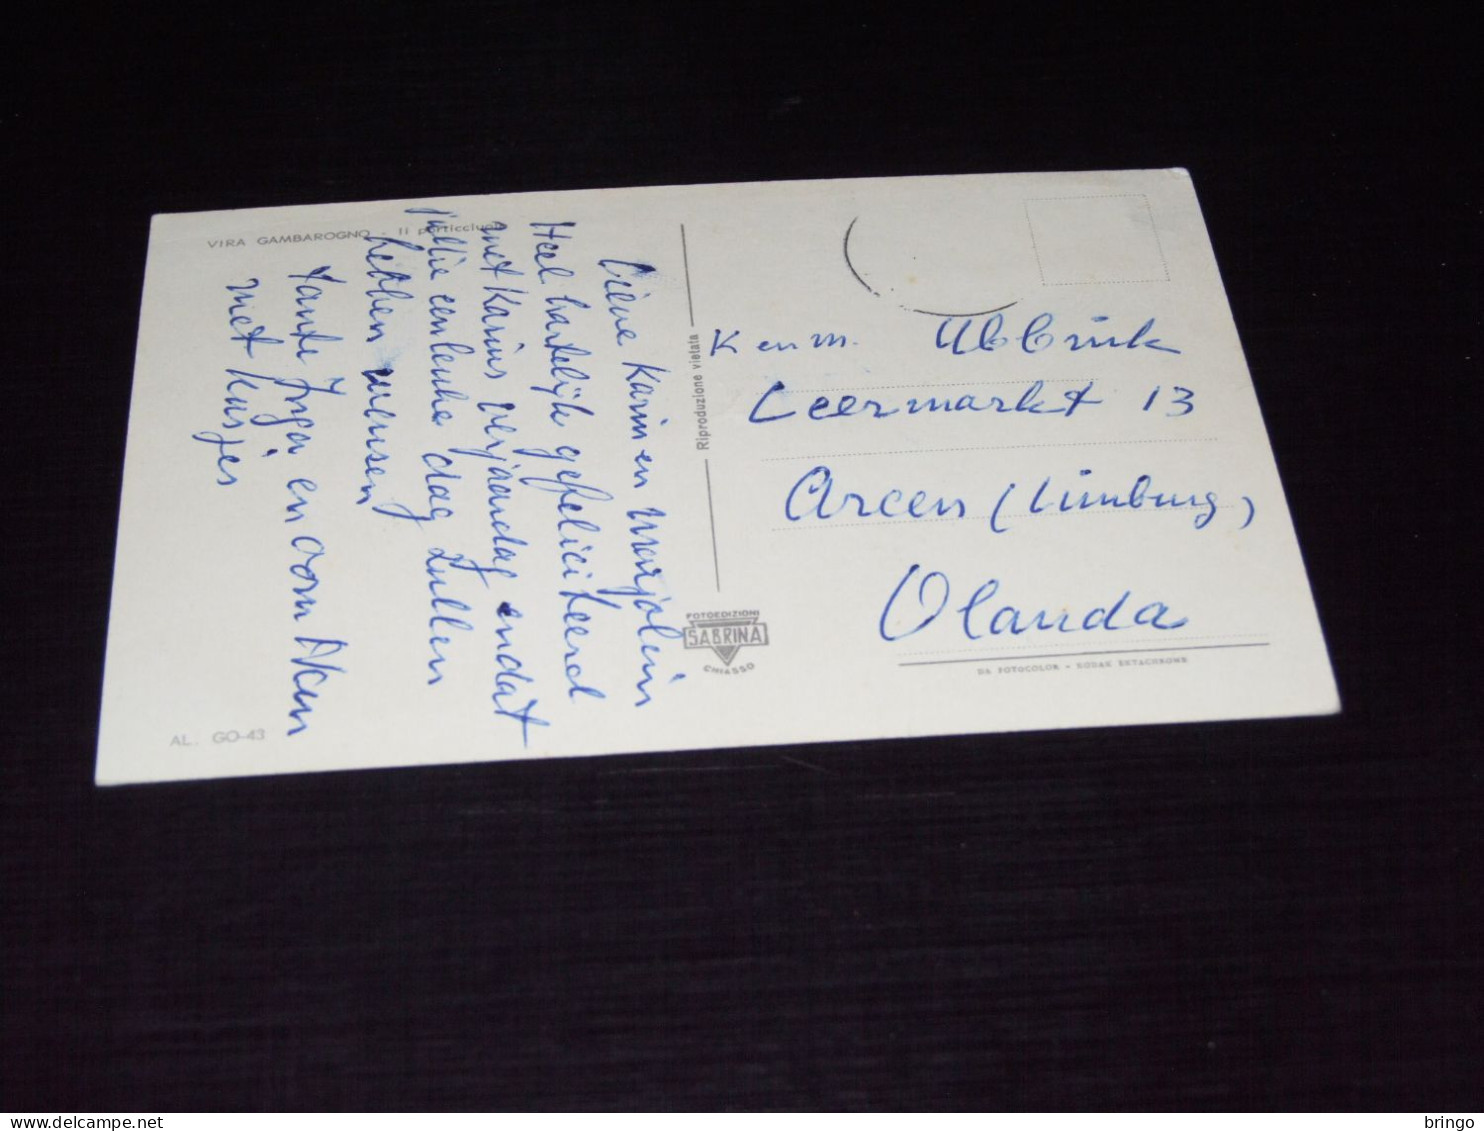 VIRA GAMBAROGNO - Il porticciuolo
Lieve Karin en Marjolein
Heel hartelijk gefeliciteerd
met Karins verjaardag en dat
jullie een leuke dag zullen
hebben wensen
tante Inga en oom Wim
met kusjes
AL. GO-43
Riproduzione vietata
FOTOEDIZIONI
SABRINA
CHIASSO
K en M. Ubbink
Leermarkt 13
Arcen (Limburg)
Olanda
DA FOTOCOLOR - KODAK EKTACHROME
delcampe.net
bringo